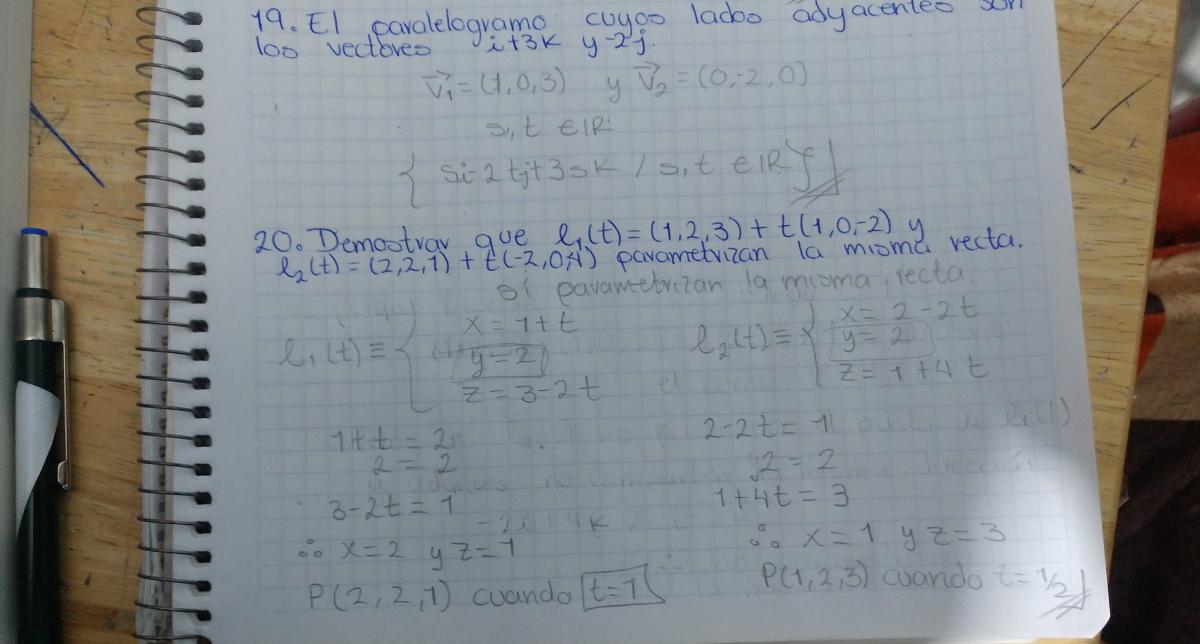 19. El paralelogramo cuyos lados adyacentes son
los vectores i+3k y -2j.
V₁ = (1,0,3) y V₂ = (0,-2,0)
s,t ∈ IR
{ si-2tj+3sk / s,t ∈ IR }
20. Demostrar que l₁(t) = (1,2,3) + t(1,0,-2) y
l₂(t) = (2,2,1) + t(-2,0,4) parametrizan la misma recta.
sí parametrizan la misma recta.
l₁(t) ≡ { x = 1+t
y = 2
z = 3-2t
l₂(t) ≡ { x = 2-2t
y = 2
z = 1+4t
1+t = 2
2 = 2
3-2t = 1
∴ x=2 y z=1
P(2,2,1) cuando t=1
2-2t = 1
2 = 2
1+4t = 3
∴ x=1 y z=3
P(1,2,3) cuando t=1/2